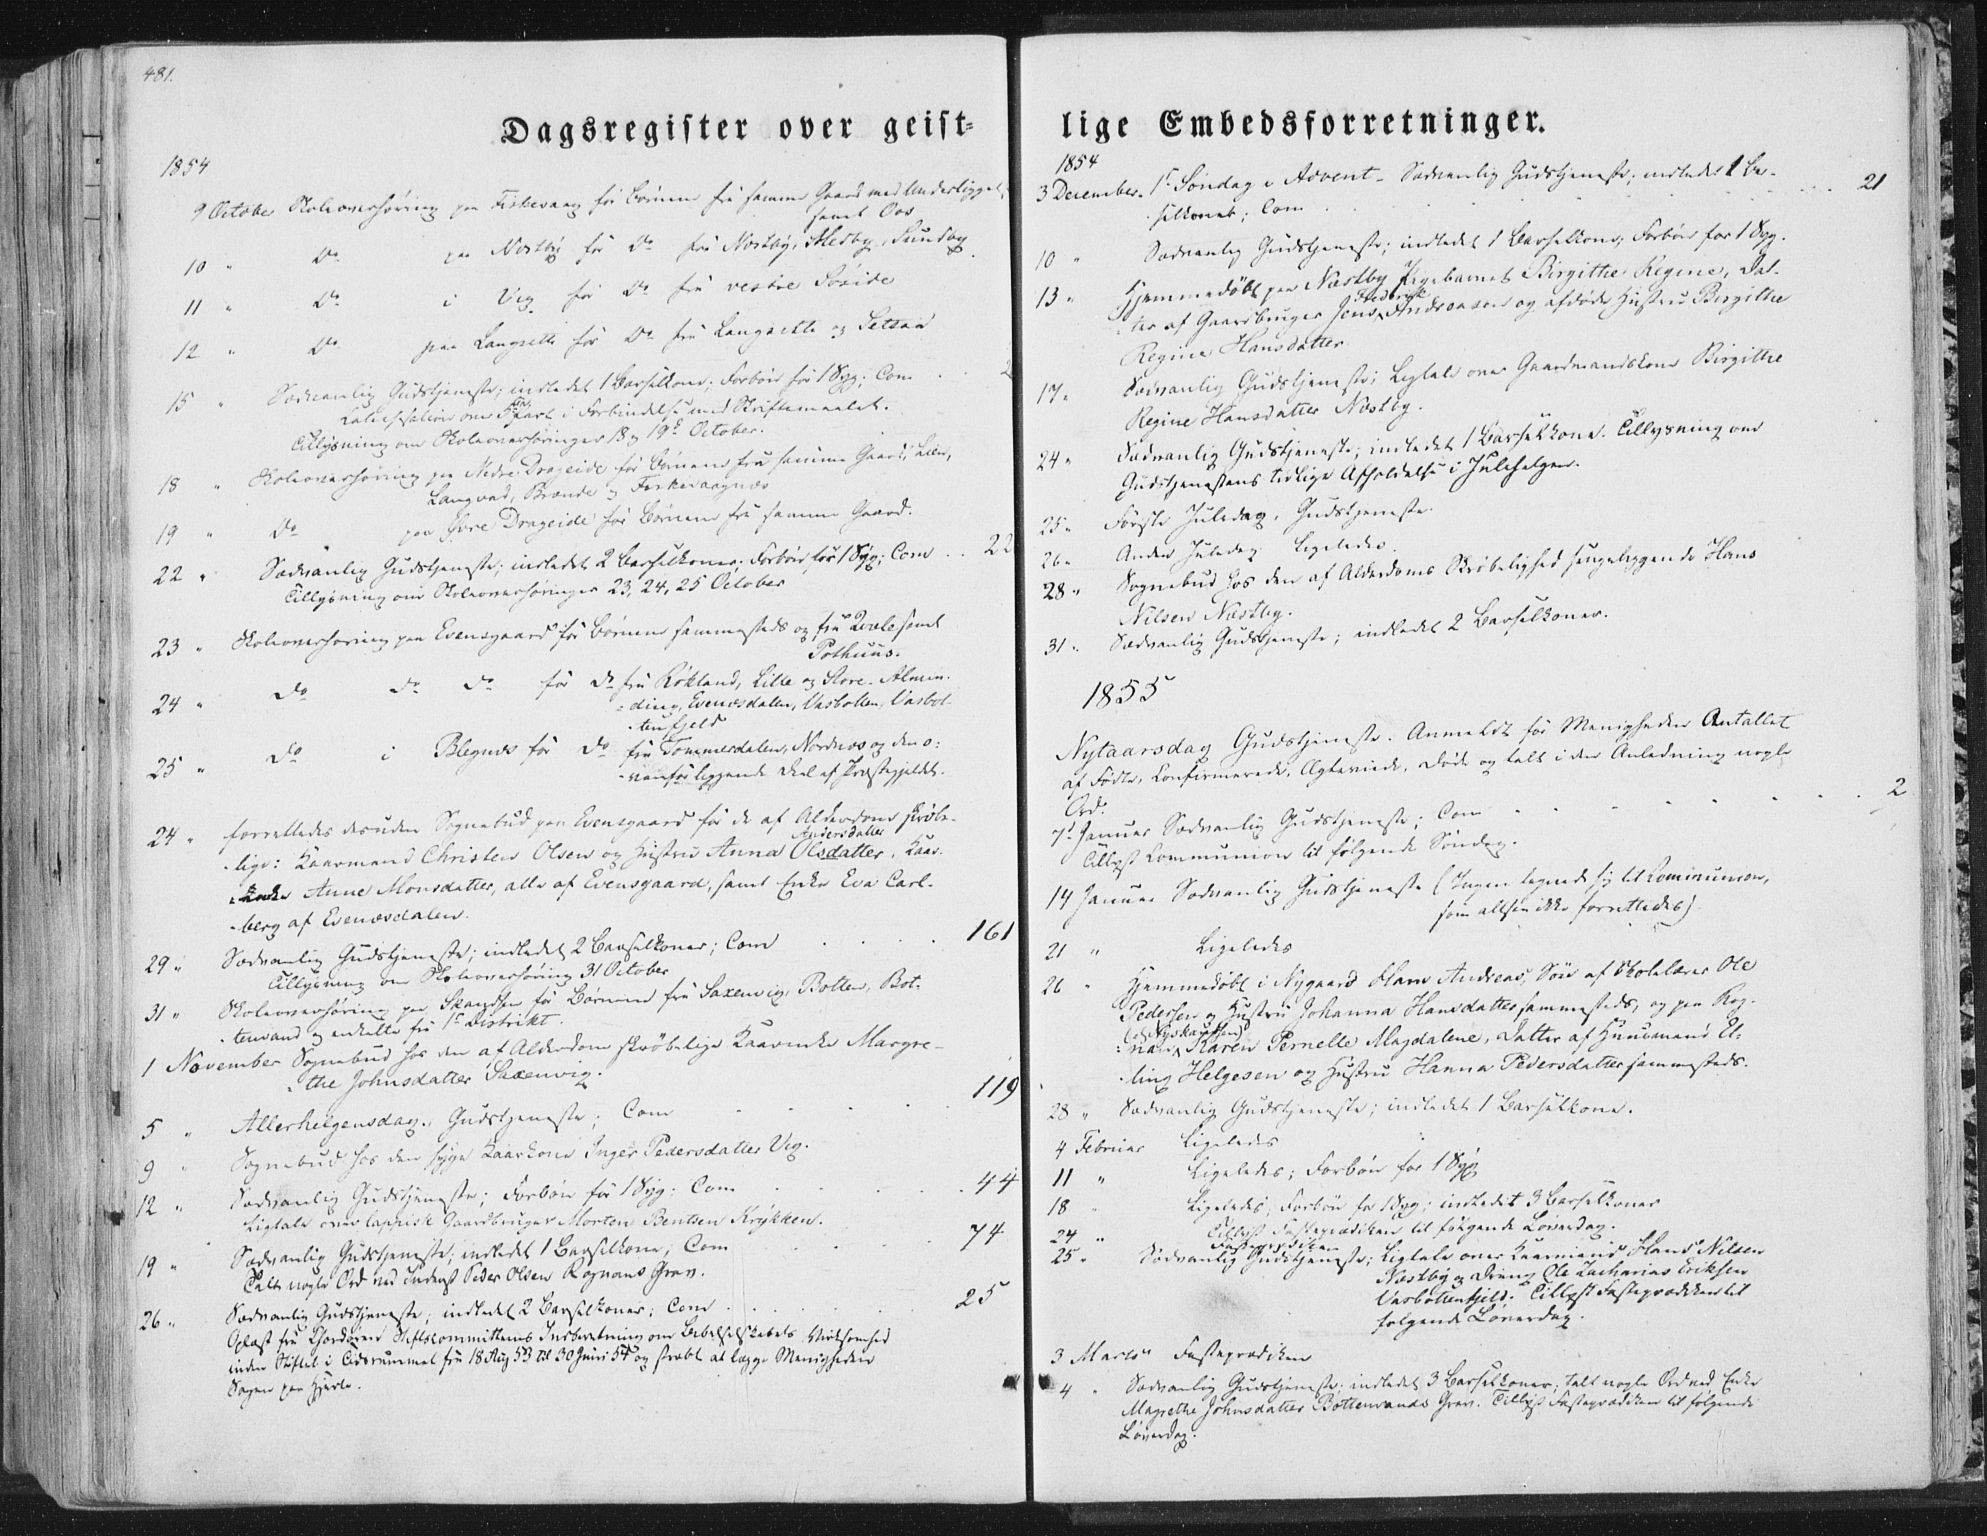 481.
Dagsregister over geist-
1854
9 October Skoleoverhøring paa Fiskevaag for Børnene fra samme Gaard med Underliggel.
samt Oos
10 " Do paa Næstby for Do fra Næstby, Medby, Sundby
11 " Do i Vig for Do fra vestre Soxide
12 " Do paa Langsetti for Do fra Langsetti og Setsaa
15 " Sædvanlig Gudstjeneste; indledet 1 Barselkone; Forbøn for 1 Syg; Com . . 2
i Forbindelse med Skriftemaalet.
Tillysning om Skoleoverhøringer 18 og 19de October.
18 " Skoleoverhøring paa Nedre Drageide for Børnene fra samme Gaard, Lien,
Langvad, Brænde og Fiskevaagnæs
19 " Do paa Øvre Drageide for Børnene fra samme Gaard.
22 " Sædvanlig Gudstjeneste; indledet 2 Barselkoner; Forbøn for 1 Syg; Com . . 22
Tillysning om Skoleoverhøringer 23, 24, 25 October
23 " Skoleoverhøring paa Evensgaard for Børnene sammesteds og fra Qvale samt
Pothuus.
24 " Do Do Do for Do fra Røkland, Lille og Store-Almin-
ding, Evenesdalen, Vasbotten, Vasbot-
tenfjeld
25 " Do i Blegnæs for Do fra Tømmerdalen, Nordnæs og den o-
venfor liggende Deel af Præstegjeldet.
24 " forrettedes desuden Sognebud paa Evensgaard for de af Alderdom skrøbe-
Andersdatter
lige: Kaarmand Christen Olsen og Hustru Anna Olsdatter, Kaar-
Enke Anne Monsdatter, alle af Evensgaard, samt Enke Eva Carl-
berg af Evenæsdalen.
29 " Sædvanlig Gudstjeneste; indledet 2 Barselkoner; Com . . . . 161
Tillysning om Skoleoverhøring 31 October
31 " Skoleoverhøring paa Skandsen for Børnene fra Saxenvig, Botten, Bot-
tenvand og enkelte fra 1ste Distrikt.
1 November Sognebud hos den af Alderdom skrøbelige Kaarenke Margre-
the Johnsdatter Saxenvig.
5 " Allerhelgensdag. Gudstjeneste; Com . . . . 119
9 " Sognebud hos den syge Kaarkone Inger Pedersdatter Vig.
12 " Sædvanlig Gudstjeneste; Forbøn for 1 Syg; Com . . . . 44
Ligtale over lappisk Gaardbruger Morten Bentsen Krykken.
19 " Sædvanlig Gudstjeneste; indledet 1 Barselkone; Com . . . 74
Talt nogle Ord ved Inderst Peder Olsen Rognans Grav.
26 " Sædvanlig Gudstjeneste; indledet 2 Barselkoner; Com . . . . 25
Oplæst fra Chordøren Stiftscommitteens Indberetning om Bibelselskabets Virksomhed
inden Stiftet i Tidsrummet fra 18 Aug 53 til 30 Juni 54 og stræbt at lægge Menigheden
Sagen paa Hjerte.
lige Embedsforretninger.
1854
3 December. 1ste Søndag i Advent. Sædvanlig Gudstjeneste; indledet 1 Bar-
selkone; Com . . . . 21
10 " Sædvanlig Gudstjeneste; indledet 1 Barselkone; Forbøn for 1 Syg.
13 " Hjemmedøbt paa Næstby Pigebarnet Birgithe Regine, Dat-
Frederik
ter af Gaardbruger Jens Andreasen og afdøde Hustru Birgithe
Regine Hansdatter.
17 " Sædvanlig Gudstjeneste; Ligtale over Gaardmandskone Birgithe
Regine Hansdatter Næstby.
24 " Sædvanlig Gudstjeneste; indledet 1 Barselkone. Tillysning om
Gudstjenestens tidlige Afholdelse i Julehelgen.
25 " Første Juledag, Gudstjeneste.
26 " Anden Juledag ligeledes.
28 " Sognebud hos den af Alderdoms Skrøbelighed sengeliggende Hans
Nilsen Næstby.
31 " Sædvanlig Gudstjeneste; indledet 2 Barselkoner.
1855
Nytaarsdag Gudstjeneste. Anmeldt for Menigheden Antallet
af Fødte, Confirmerede, Ægteviede, Døde og talt i den Anledning nogle
Ord.
7de Januar Sædvanlig Gudstjeneste; Com . . . . 2
Tillyst Communion til følgende Søndag.
14 Januar Sædvanlig Gudstjeneste (Ingen tegnede sig til Communion,
som altsaa ikke forrettedes).
21 " Ligeledes
26 " Hjemmedøbt i Nygaard Hans Andreas, Søn af Skolelærer Ole
Pedersen og Hustru Johanna Hansdatter sammesteds, og paa Rog-
nan, Karen Pernelle Magdalene, Datter af Huusmand El-
ling Helgesen og Hustru Hanna Pedersdatter sammesteds.
28 " Sædvanlig Gudstjeneste; indledet 1 Barselkone.
4 Februar Ligeledes
11 " Ligeledes; Forbøn for 1 Syg
18 " Ligeledes; Forbøn for 1 Syg; indledet 3 Barselkoner
Tillyst Fasteprædiken til følgende Løverdag.
24 " Fasteprædiken
25 " Sædvanlig Gudstjeneste; Ligtale over Kaarmand Hans Nilsen
Næstby og Dreng Ole Zacharias Eriksen
Vasbottenfjeld. Tillyst Fasteprædiken til
følgende Løverdag.
3 Marts Fasteprædiken
4 " Sædvanlig Gudstjeneste; indledet 3 Barselkoner; talt nogle Ord ved Enke
Magrethe Johnsdatter Bottenvands Grav. Tillyst Fasteprædiken til følgende
Løverdag.